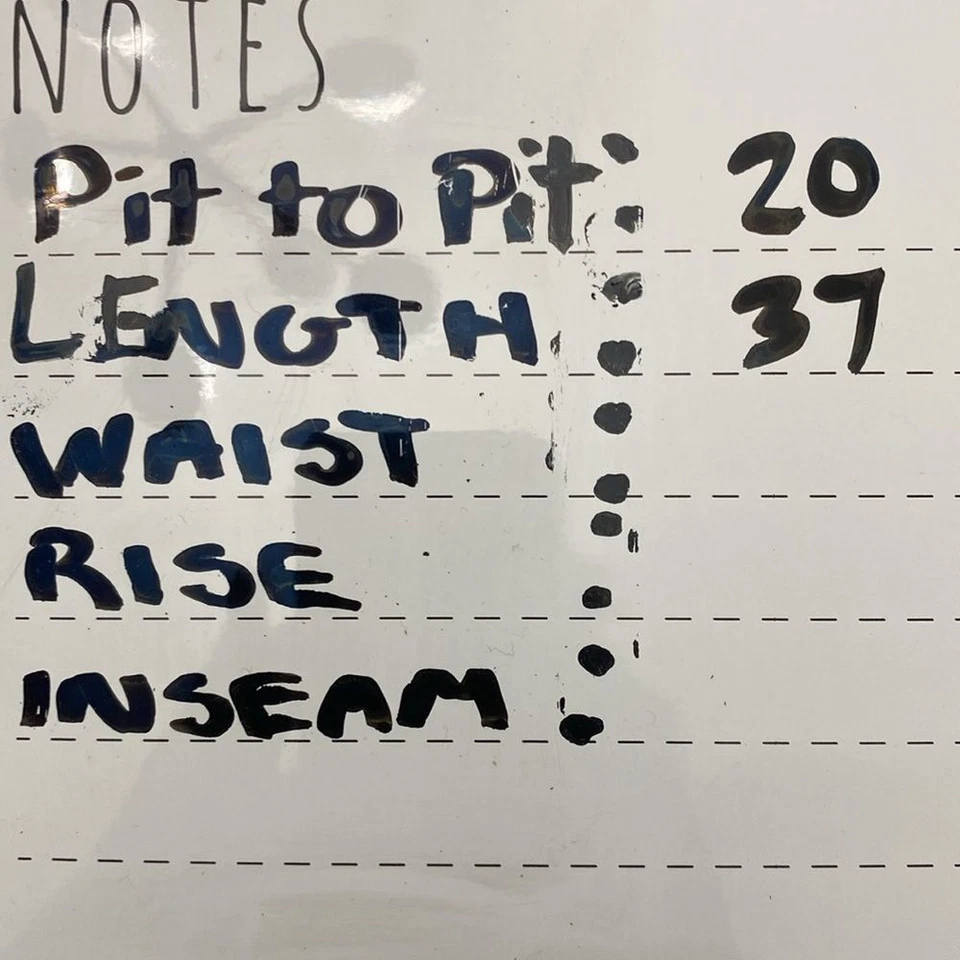 NOTES
Pit to Pit: 20
LENGTH : 37
WAIST :
RISE :
INSEAM :